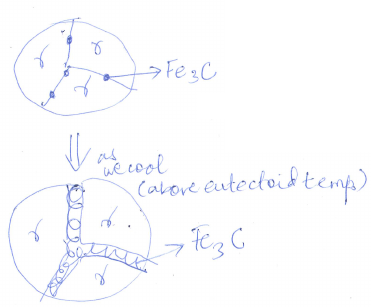 γ γ
γ
Fe3C
as
we cool
(above eutectoid temp)
γ γ
γ
Fe3C